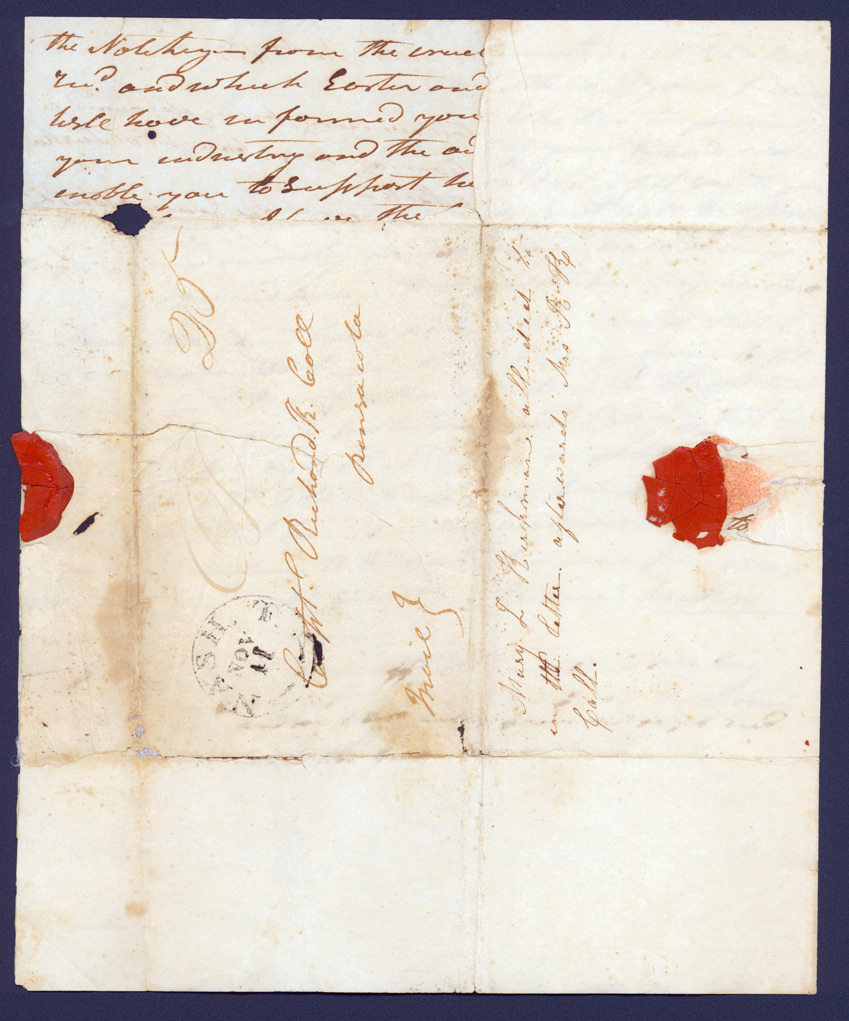 the Notchey— from the cruel
Recd. and which Easter and
will have informed you
your industry and the ai
enable you to Support he
the
25
Capt. Richard K. Call
pensacola
Mail
NASH. T.
NOV
11
Mary L Kirkman alluded to
in the letter. afterwards Mrs R K
Call.
to